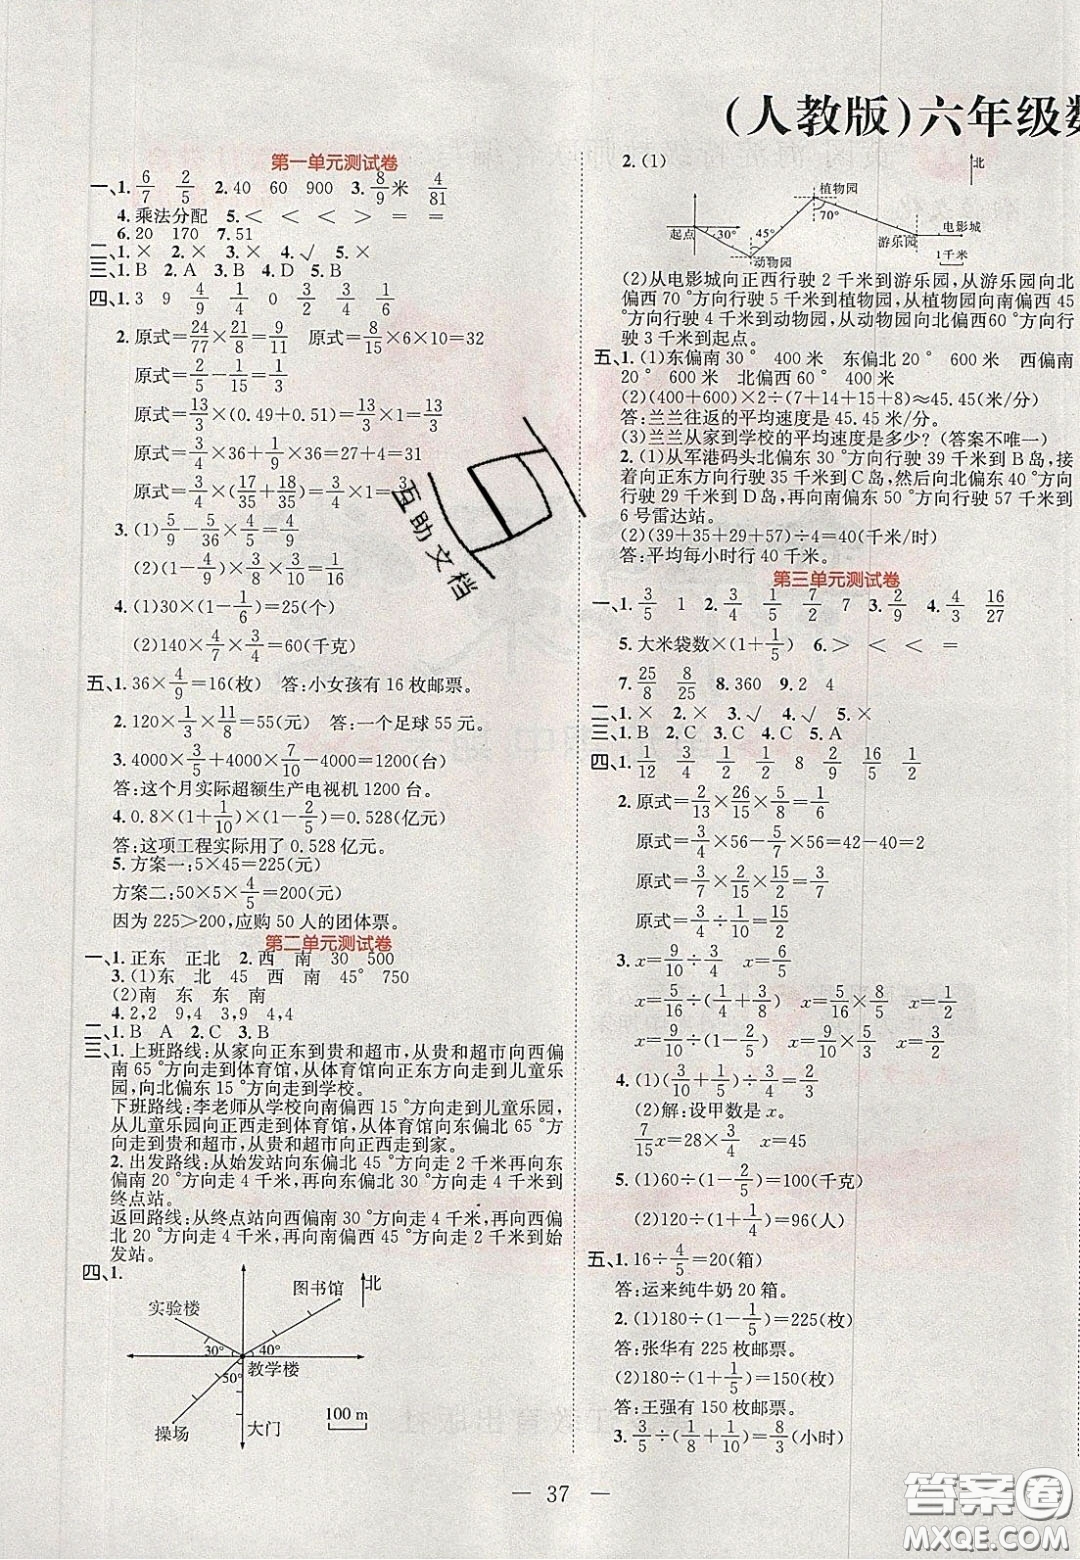 （人教版）六年级数
第一单元测试卷
一、1. 6/7 2/5 2. 40 60 900 3. 8/9米 4/81
4. 乘法分配 5. < < < = =
6. 20 170 7. 51
二、1. × 2. × 3. × 4. √ 5. ×
三、1. B 2. A 3. B 4. D 5. B
四、1. 3 9 4/9 1/4 0 3/2 3/4 4/9
2. 原式=24/77×21/8=9/11 原式=8/15×6×10=32
原式=2/5-1/15=1/3
原式=13/3×(0.49+0.51)=13/3×1=13/3
原式=3/4×36+1/9×36=27+4=31
原式=13/6×(17/35+18/35)=13/6×1=13/6
3. (1)5/9-5/9×1/5=4/9
(2)
4. (1)30×(1-1/6)=25(个)
(2)140×4/7×3/4=60(千克)
五、1. 36×4/9=16(枚) 答:小女孩有 16 枚邮票。
2. 120×1/3×11/8=55(元) 答:一个足球 55 元。
3. 4000×4/5+4000×1/2-4000=1200(台)
答:这个月实际超额生产电视机 1200 台。
4. 0.8×(1+1/10)×(1-2/5)=0.528(亿元)
答:这项工程实际用了 0.528 亿元。
5. 方案一:5×45=225(元)
方案二:50×5×4/5=200(元)
因为 225>200,应购 50 人的团体票。
第二单元测试卷
一、1. 正东 正北 2. 西 南 30 500
3. (1)东 北 45 西 南 45° 750
(2)南 东 东 南
4. 2,2 9,4 3,9 4,4
二、1. B A 2. C 3. B
三、1. 上班路线:从家向正东到贵和超市,从贵和超市向西偏
南 65°方向走到体育馆,从体育馆向正东方向走到儿童乐
园,向北偏东 15°方向走到学校。
下班路线:李老师从学校向南偏西 15°方向走到儿童乐园,
从儿童乐园向正西方向走到体育馆,从体育馆向东偏北 65°
方向走到贵和超市,从贵和超市向正西走到家。
2. 出发路线:从始发站向东偏北 45°方向走 2 千米再向东
偏南 20°方向走 4 千米,再向东偏北 30°方向走 4 千米到
终点站。
返回路线:从终点站向西偏南 30°方向走 4 千米,再向西偏
北 20°方向走 4 千米,再向南偏西 45°方向走 2 千米到始
发站。
四、1.
图书馆
北
实验楼
30° 40°
教学楼
50°
操场
大门
100 m
2. (1)
北
植物园
70°
30° 45°
起点
动物园
游乐园
电影城
1千米
(2)从电影城向正西行驶 2 千米到游乐园,从游乐园向北
偏西 70°方向行驶 5 千米到植物园,从植物园向南偏西
45°方向行驶 4 千米到动物园,从动物园向北偏西60°方向
行驶 3 千米到起点。
五、1. (1)东偏南 30° 400 米 东偏北 20° 600 米 西偏南
20° 600 米 北偏西 60° 400 米
(2)(400+600)×2÷(7+14+15+8)≈45.45(米/分)
答:兰兰往返的平均速度是 45.45 米/分。
(3)兰兰从家到学校的平均速度是多少?(答案不唯一)
2. (1)从军港码头北偏东 30°方向行驶 39 千米到 B 岛,接
着向正东方向行驶 35 千米到C岛,然后向北偏东 40°方
向行驶 29 千米到 D 岛,再向南偏东 50°方向行驶 57 千米到
6 号雷达站。
(2)(39+35+29+57)÷4=40(千米/时)
答:平均每小时行 40 千米。
第三单元测试卷
一、1. 3/5 1 2. 3/4 1/5 7/2 7 3. 2/9 4. 3/4 16/27
5. 大米袋数×(1+1/5) 6. > < < =
7. 25/8 8/25 8. 360 9. 2 4
二、1. × 2. × 3. √ 4. √ 5. ×
三、1. B 2. C 3. C 4. C 5. A
四、1. 1/12 3/4 1/2 8 2/9 16/5 1/2
2. 原式=2/13×26/15×5/8=1/6
原式=3/4×56-5/7×56=42-40=2
原式=3/7×2/15×7/2=1/5
原式=1/10÷1/10=1
3. x=9/10÷3/4 x=6/5
x=5/16÷(1/4+3/8) x=5/16×8/5 x=1/2
4. (1)(3/10+1/5)÷2/5=5/4
(2)解:设甲数是 x。
7/15x=28×3/4 x=45
5. (1)60÷(1-2/5)=100(千克)
(2)120÷(1+1/4)=96(人)
五、1. 16÷4/5=20(箱)
答:运来纯牛奶 20 箱。
2. (1)180÷(1-1/5)=225(枚)
答:张华有 225 枚邮票。
(2)180÷(1+1/5)=150(枚)
答:王强有 150 枚邮票。
3. 1/5÷(1/8-1/10)=8(小时)
— 37 —
互助文档
答案圈
MXQE.COM